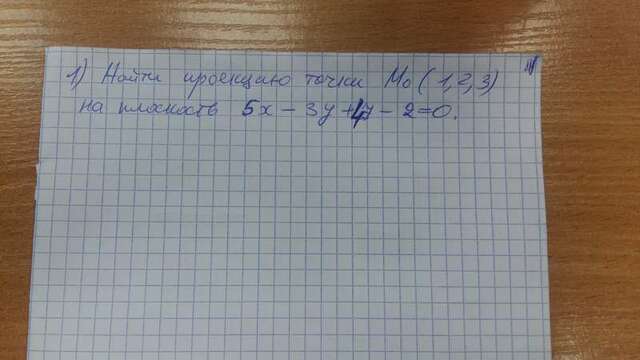 1) Найти проекцию точки M₀ (1,2,3)
на плоскость 5x - 3y + 4z - 2 = 0.